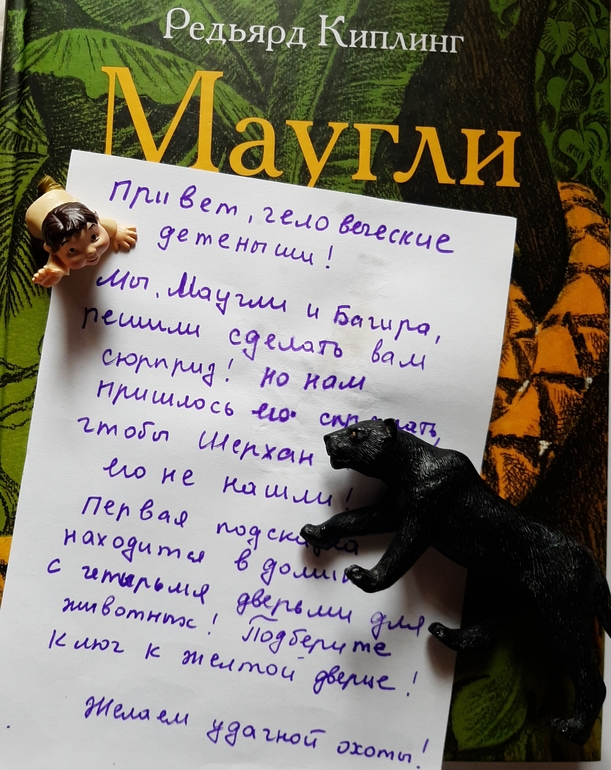 Редьярд Киплинг
Маугли
Привет, человеческие
детеныши!
Мы, Маугли и Багира,
решили сделать вам
сюрприз! Но нам
пришлось его
чтобы Шерхан
его не нашли!
Первая подсказка
находится в домике
с четырьмя дверьми для
животных! Подберите
ключ к желтой дверце!
Желаем удачной охоты!